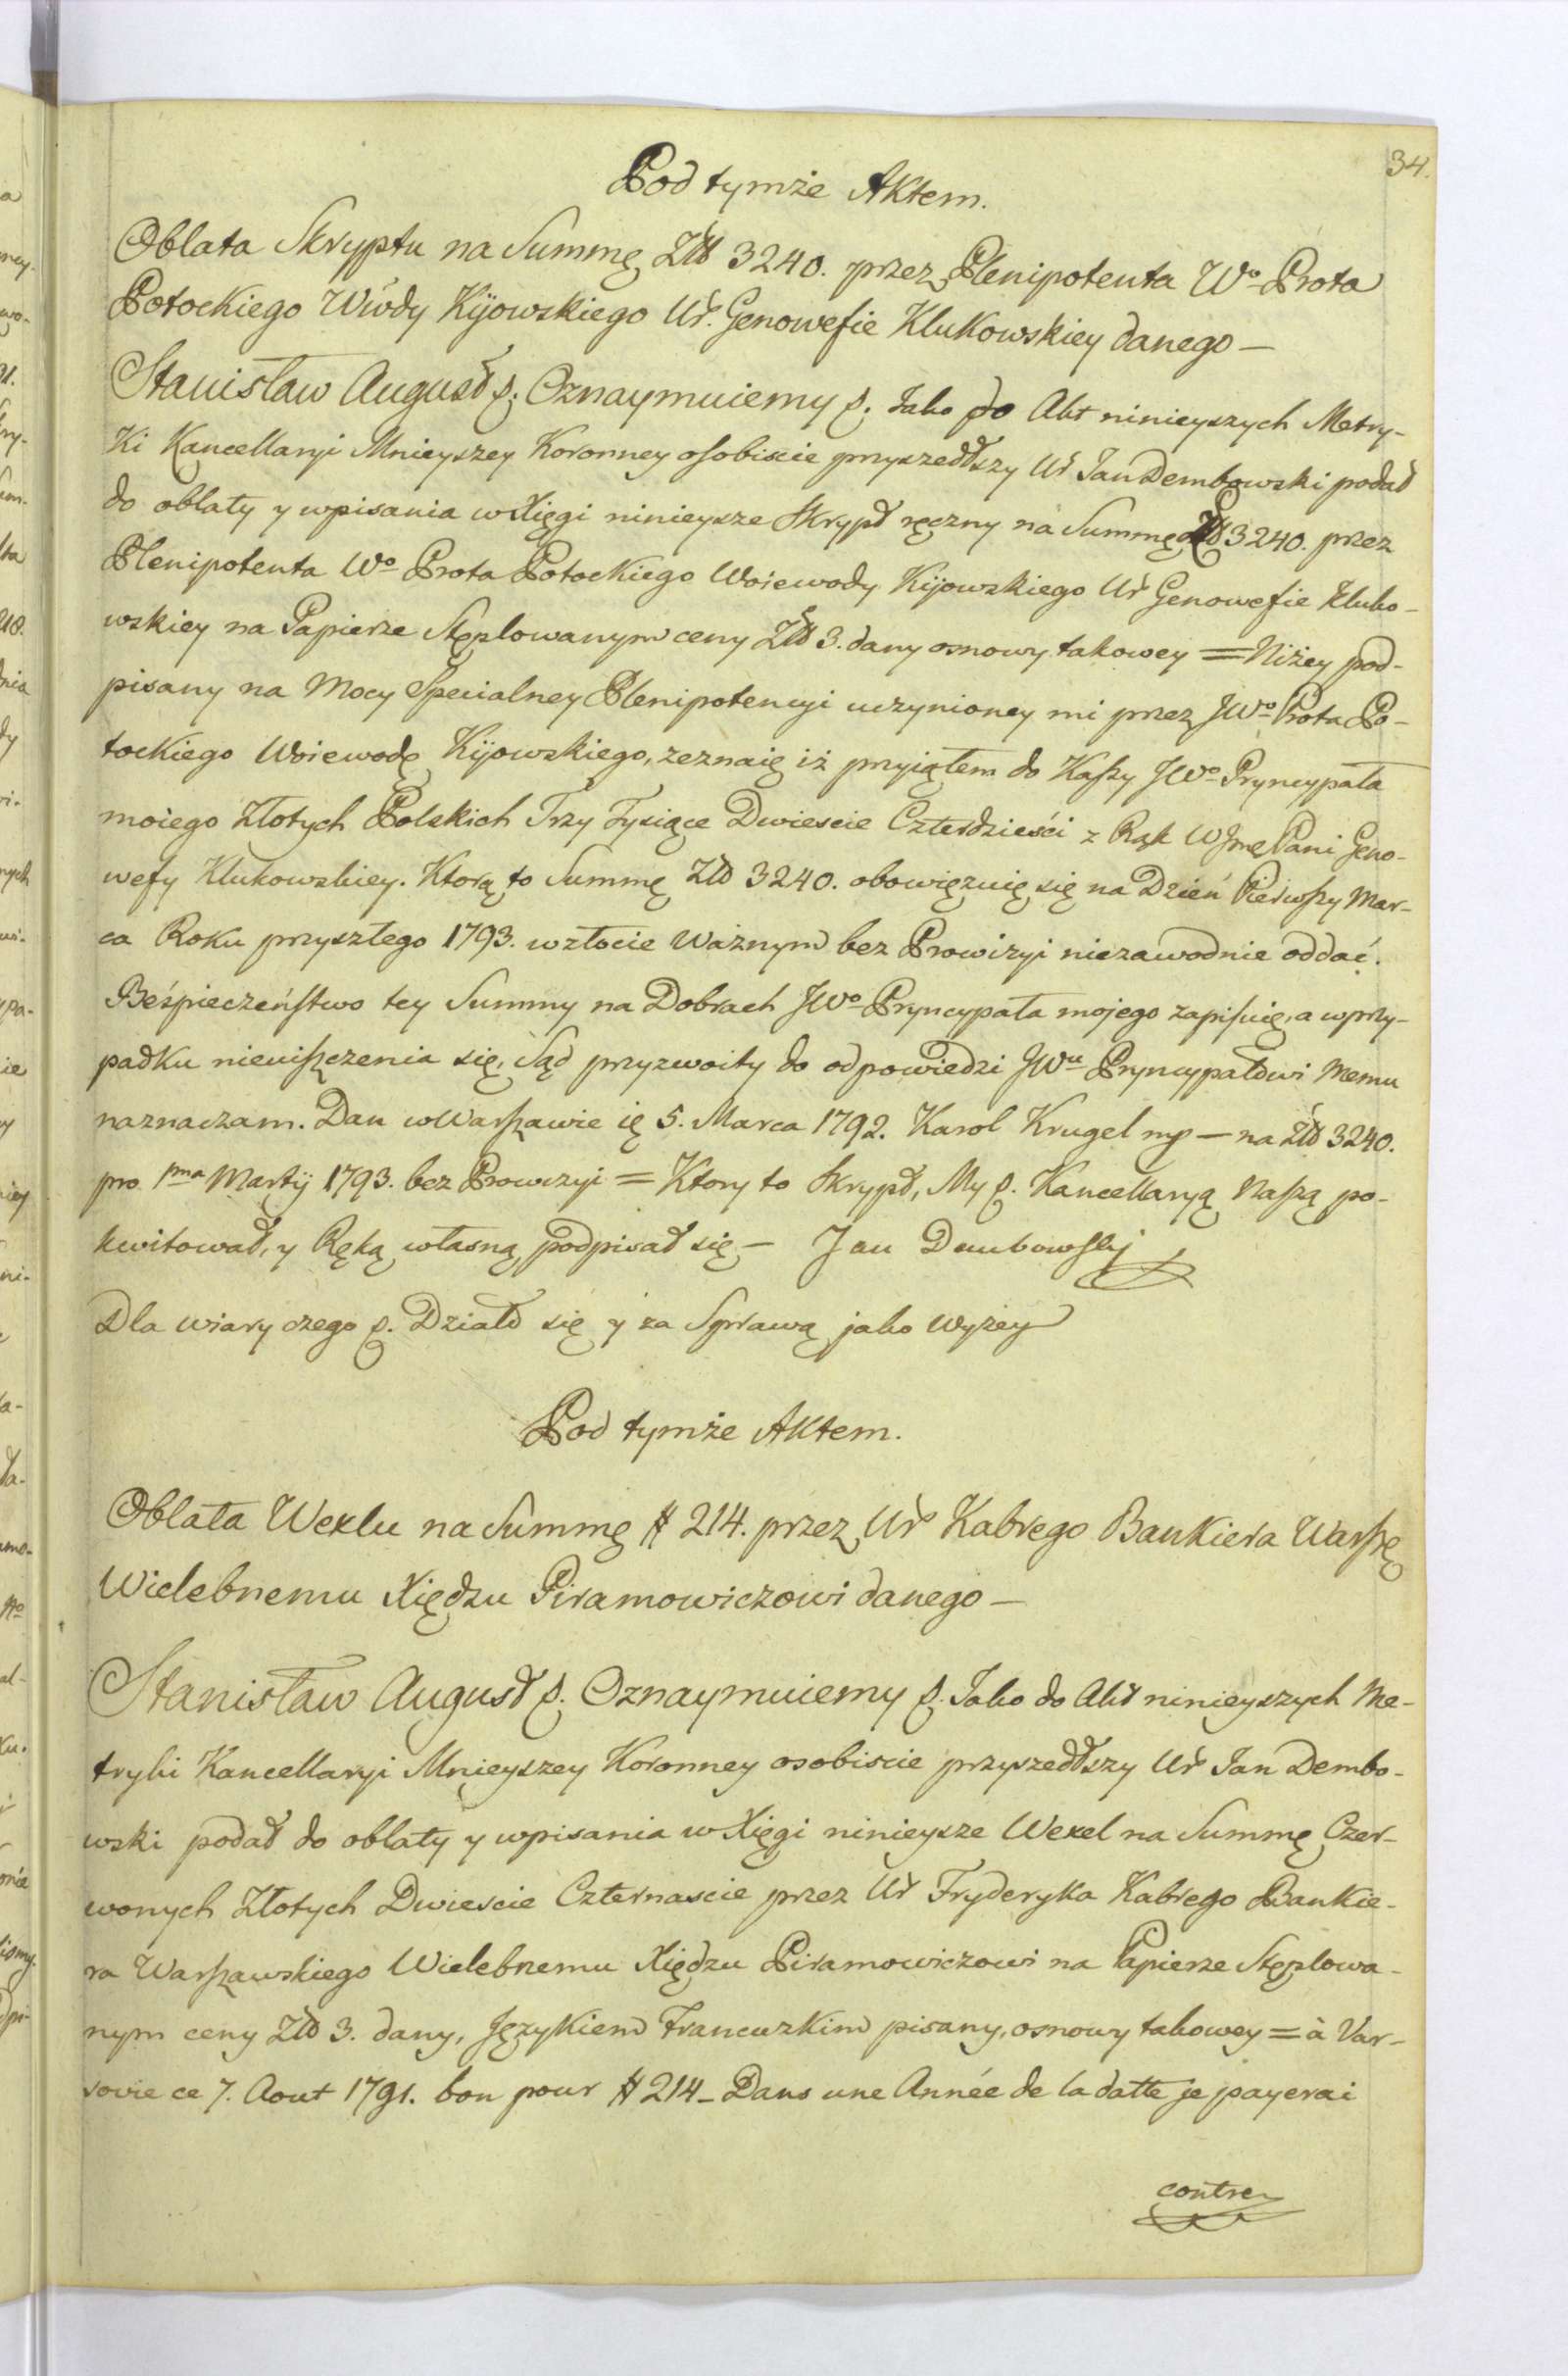 34.
Pod tymże Aktem.
Oblata Skryptu na Summę Złł 3240. przez Plenipotenta Wo Prota
Potockiego Wwdy Kijowskiego Ur. Genowefie Klukowskiey danego —
Stanisław August p. Oznaymuiemy p. Iako do Akt ninieyszych Metry-
ki Kancellaryi Mnieyszey Koronney osobiscie przyszedłszy Ur Ian Dembowski podał
do oblaty y wpisania w Xięgi ninieysze Skrypt ręczny na Summę Złł 3240. przez
Plenipotenta Wo Prota Potockiego Woiewody Kijowskiego Ur Genowefie Kluko-
wskiey na Papierze Stęplowanym ceny Złł 3. dany osnowy takowey = Niżey pod-
pisany na Mocy Specialney Plenipotencyi uczynioney mi przez JWo Prota Po-
tockiego Woiewodę Kijowskiego, zeznaię iż przyiąłem do Kassy JWo Pryncypała
moiego Złotych Polskich Trzy Tysiące Dwiescie Czterdzieści z Rąk WJmę Pani Geno-
wefy Klukowskiey. Ktorą to Summę Złł 3240. obowięzuię się na Dzień Pierwszy Mar-
ca Roku przyszłego 1793. w złocie ważnym bez Prowizyi niezawodnie oddać.
Beśpieczeństwo tey Summy na Dobrach JWo Pryncypała mojego zapisuię, a w przy-
padku nieuiszczenia się, Sąd przyzwoity do odpowiedzi JWu Pryncypałowi Memu
naznaczam. Dan w Warszawie ię 5. Marca 1792. Karol Krugel mp — na Złł 3240.
pro 1ma Martij 1793. bez Prowizyi = Ktory to Skrypt, My p. Kancellaryą Naszą po-
kwitował, y Ręką własną podpisał się — Jan Dembowskij
Dla wiary czego p. Działo się y za Sprawą jako wyżey
Pod tymże Aktem.
Oblata Wexlu na Summę # 214. przez Ur Kabrego Bankiera Warszę
Wielebnemu Xiędzu Piramowiczowi danego —
Stanisław August p. Oznaymuiemy p. Iako do Akt ninieyszych Me-
tryki Kancellaryi Mnieyszey Koronney osobiscie przyszedłszy Ur Ian Dembo-
wski podał do oblaty y wpisania w Xięgi ninieysze Wexel na Summę Czer-
wonych Złotych Dwiescie Czternascie przez Ur Fryderyka Kabrego Bankie-
ra Warszawskiego Wielebnemu Xiędzu Piramowiczowi na Papierze Stęplowa-
nym ceny Złł 3. dany, Językiem Francuzkim pisany, osnowy takowey = à Var-
sovie ce 7. Aout 1791. bon pour # 214 — Dans une Année de la datte je payerai
contre